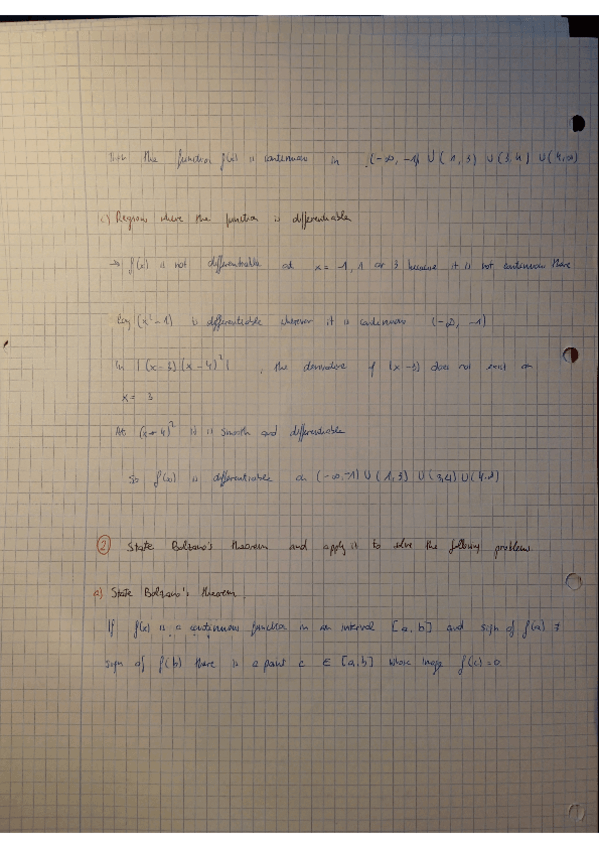 the function f(x) is continuous in (-∞, -1) ∪ (1, 3) ∪ (3,4) ∪ (4,∞)
c) Regions where the function is differentiable
→ f(x) is not differentiable at x = -1, 1 or 3 because it is not continuous there
log (x² - 1) is differentiable wherever it is continuous (-∞, -1)
ln |(x-3)(x-4)²| , the derivative of (x-3) does not exist on
x = 3
At (x+4)² it is smooth and differentiable
So f(x) is differentiable on (-∞,-1) ∪ (1,3) ∪ (3,4) ∪ (4,∞)
② State Bolzano's theorem and apply it to solve the following problem
a) State Bolzano's theorem
If f(x) is a continuous function in an interval [a, b] and sign of f(a) ≠
sign of f(b) there is a point c ∈ [a,b] whose image f(c) = 0